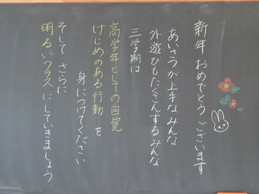 新年 おめでとうございます
あいさつが上手なみんな
外遊びもたくさんするみんな
三学期は
高学年としての自覚
けじめのある行動 を
身につけてください
そして さらに
明るいクラスにしていきましょう